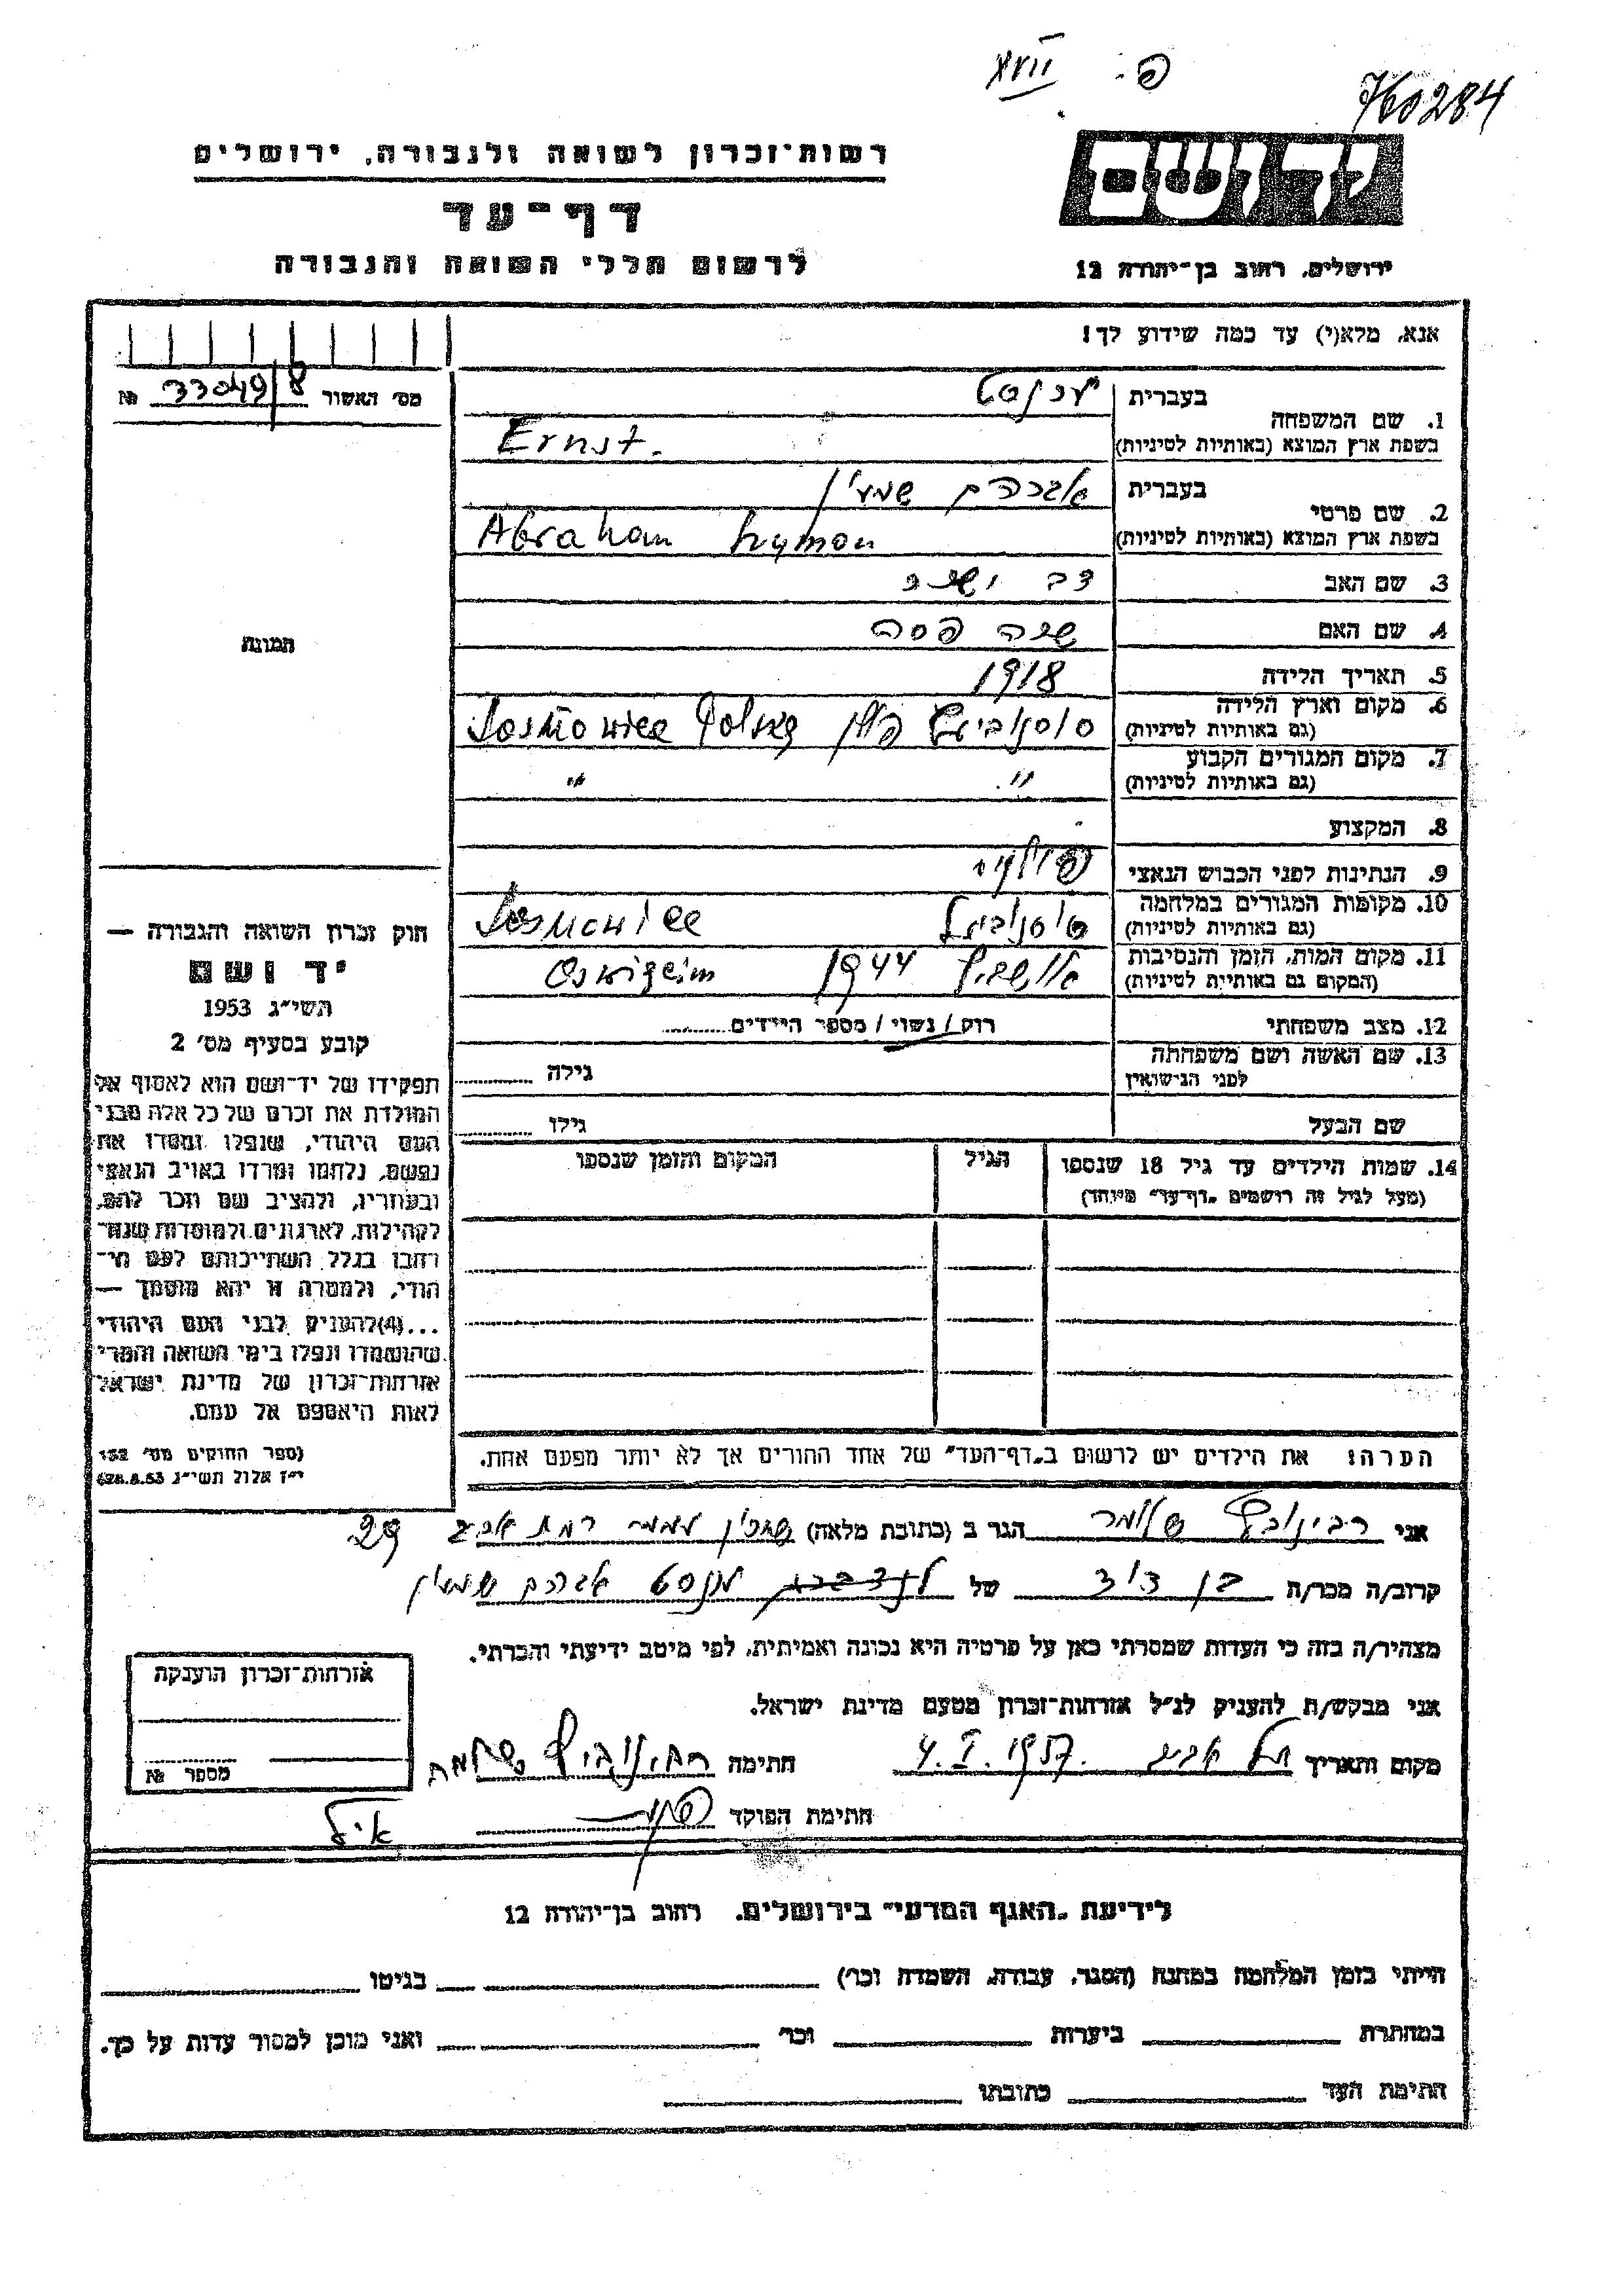 760284
פ. XVII
יד ושם
רשות־זכרון לשואה ולגבורה, ירושלים
דף־עד
לרשום חללי השואה והגבורה
ירושלים, רחוב בן־יהודה 12
אנא, מלא(י) עד כמה שידוע לך!
מס׳ האשור 33049/8 №
1. שם המשפחה
בעברית
בשפת ארץ המוצא (באותיות לטיניות) Ernst.
2. שם פרטי
בעברית אברהם שמעון
בשפת ארץ המוצא (באותיות לטיניות) Abraham
3. שם האב דב
4. שם האם
5. תאריך הלידה 1918
6. מקום וארץ הלידה
(גם באותיות לטיניות) סוסנוביץ פולין Sosnowiec Polska
7. מקום המגורים הקבוע
(גם באותיות לטיניות) " "
8. המקצוע
9. הנתינות לפני הכבוש הנאצי פולניה
10. מקומות המגורים במלחמה
(גם באותיות לטיניות) סוסנוביץ Sosnowiec
11. מקום המות, הזמן והנסיבות
(המקום גם באותיות לטיניות) אושביץ 1944 Oswigcim
12. מצב משפחתי רווק / נשוי / מספר הילדים
13. שם האשה ושם משפחתה
לפני הנישואין גילה
שם הבעל גילו
14. שמות הילדים עד גיל 18 שנספו
(מעל לגיל זה רושמים „דף־עד" מיוחד)
הגיל
המקום והזמן שנספו
הערה: את הילדים יש לרשום ב„דף־העד" של אחד ההורים אך לא יותר מפעם אחת.
תמונה
חוק זכרון השואה והגבורה —
יד ושם
תשי״ג 1953
קובע בסעיף מס׳ 2
תפקידו של יד־ושם הוא לאסוף אל
המולדת את זכרם של כל אלה מבני
העם היהודי, שנפלו ומסרו את
נפשם, נלחמו ומרדו באויב הנאצי
ובעוזריו, ולהציב שם וזכר להם,
לקהילות, לארגונים ולמוסדות שנח־
רבו בגלל השתייכותם לעם הי־
הודי, ולמטרה זו יהא מוסמך —
...(4)להעניק לבני העם היהודי
שהושמדו ונפלו בימי השואה והמרי
אזרחות־זכרון של מדינת ישראל
לאות היאספם אל עמם.
(ספר החוקים מס׳ 132
י״ז אלול תשי״ג 28.8.53)
אני רבינוביץ שלמה הגר ב (כתובת מלאה) רמת אביב 29
קרוב/ה מכר/ה בן דוד של ארנסט אברהם שמעון
מצהיר/ה בזה כי העדות שמסרתי כאן על פרטיה היא נכונה ואמיתית, לפי מיטב ידיעתי והכרתי.
אני מבקש/ת להעניק לנ״ל אזרחות־זכרון מטעם מדינת ישראל.
מקום ותאריך תל אביב 4.I.1957. חתימה רבינוביץ שלמה
חתימת הפוקד
אזרחות־זכרון הוענקה
מספר №
לידיעת „האגף המדעי" בירושלים, רחוב בן־יהודה 12
הייתי בזמן המלחמה במחנה (הסגר, עבודה, השמדה וכו׳) בגיטו
במחתרת ביערות וכו׳ ואני מוכן למסור עדות על כך.
חתימת העד כתובתו